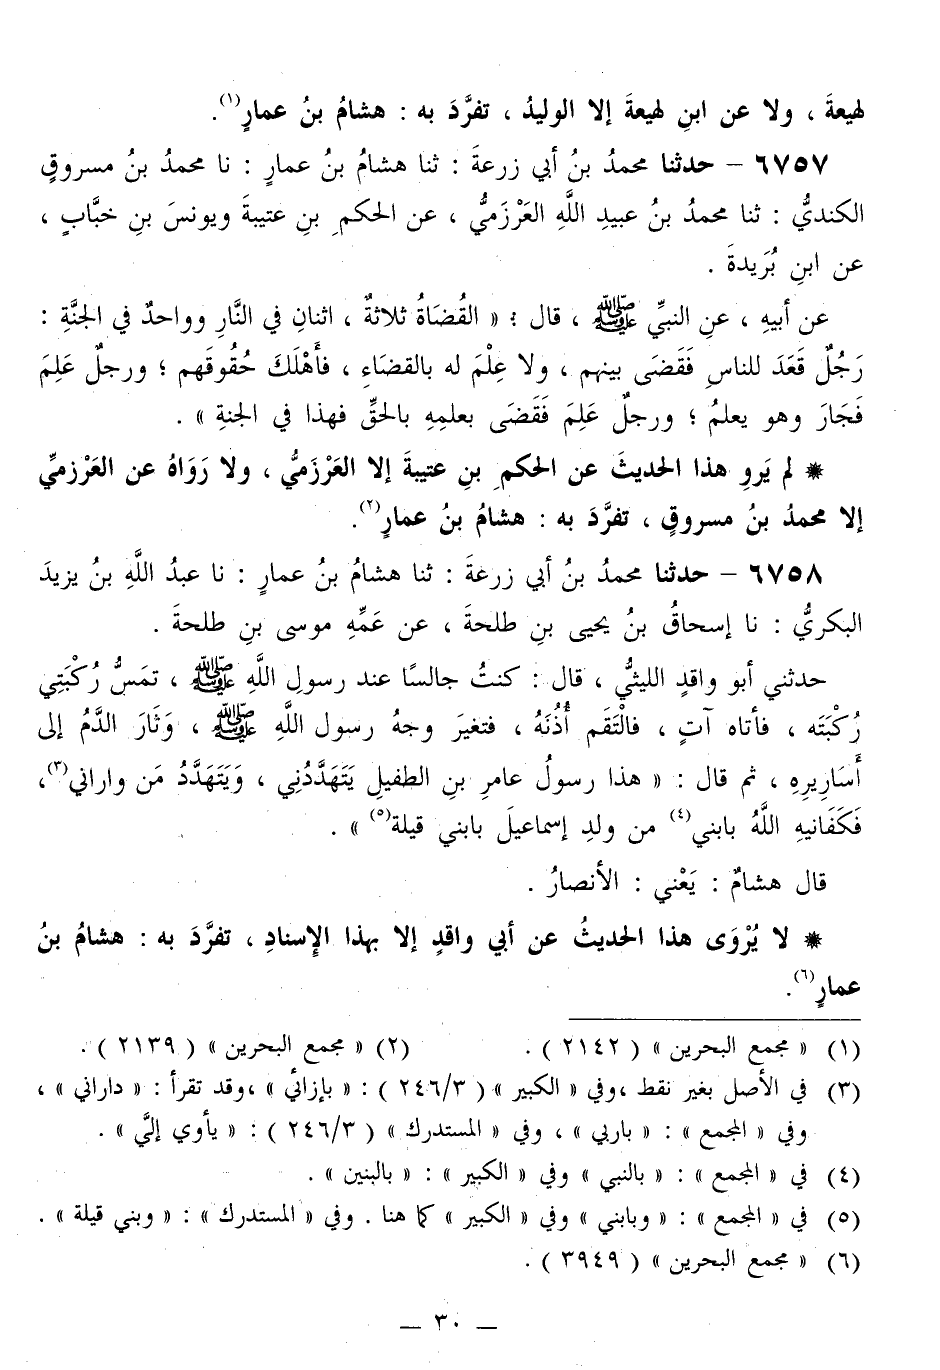 لهيعةَ ، ولا عن ابنِ لهيعةَ إلا الوليدُ ، تفرَّدَ به : هشامُ بنُ عمارٍ(١).
٦٧٥٧ – حدثنا محمدُ بنُ أبي زرعةَ : ثنا هشامُ بنُ عمارٍ : نا محمدُ بنُ مسروقٍ
الكنديُّ : ثنا محمدُ بنُ عبيدِ اللَّهِ العَرْزَميُّ ، عن الحكمِ بنِ عتيبةَ ويونسَ بنِ خبَّابٍ ،
عن ابنِ بُرَيدةَ .
عن أبيهِ ، عنِ النبيِّ ﷺ ، قال : « القُضَاةُ ثلاثةٌ ، اثنانِ في النَّارِ وواحدٌ في الجنَّةِ :
رَجُلٌ قَعَدَ للناسِ فَقَضَى بينهم ، ولا عِلْمَ له بالقضاءِ ، فأَهْلَكَ حُقُوقَهم ؛ ورجلٌ عَلِمَ
فَجَارَ وهو يعلمُ ؛ ورجلٌ عَلِمَ فَقَضَى بعلمِهِ بالحقِّ فهذا في الجنةِ » .
* لم يَروِ هذا الحديثَ عن الحكمِ بنِ عتيبةَ إلا العَرْزَميُّ ، ولا رَوَاهُ عن العَرْزميِّ
إلا محمدُ بنُ مسروقٍ ، تفرَّدَ به : هشامُ بنُ عمارٍ(٢).
٦٧٥٨ – حدثنا محمدُ بنُ أبي زرعةَ : ثنا هشامُ بنُ عمارٍ : نا عبدُ اللَّهِ بنُ يزيدَ
البكريُّ : نا إسحاقُ بنُ يحيى بنِ طلحةَ ، عن عَمِّهِ موسى بنِ طلحةَ .
حدثني أبو واقدٍ الليثيُّ ، قال : كنتُ جالسًا عند رسولِ اللَّهِ ﷺ ، تمَسُّ رُكْبَتِي
رُكْبَتَه ، فأتاه آتٍ ، فالْتَقَم أُذُنَهُ ، فتغيرَ وجهُ رسول اللَّهِ ﷺ ، وَثَارَ الدَّمُ إلى
أَسَارِيرِهِ ، ثم قال : « هذا رسولُ عامرِ بنِ الطفيلِ يَتَهَدَّدُنِي ، وَيَتَهَدَّدُ مَن واراني(٣)،
فَكَفَانيهِ اللَّهُ بابني(٤) من ولدِ إسماعيلَ بابني قيلة(٥) » .
قال هشامٌ : يَعْني : الأنصارُ .
* لا يُرْوَى هذا الحديثُ عن أبي واقدٍ إلا بهذا الإِسنادِ ، تفرَّدَ به : هشامُ بنُ
عمارٍ(٦).
(١) « مجمع البحرين » ( ٢١٤٢ ) . (٢) « مجمع البحرين » ( ٢١٣٩ ) .
(٣) في الأصل بغير نقط ، وفي « الكبير » ( ٢٤٦/٣ ) : « بإزائي » ، وقد تقرأ : « داراني » ،
وفي « المجمع » : « باربي » ، وفي « المستدرك » ( ٢٤٦/٣ ) : « يأوي إليَّ » .
(٤) في « المجمع » : « بالنبي » وفي « الكبير » : « بالبنين » .
(٥) في « المجمع » : « وبابني » وفي « الكبير » كما هنا . وفي « المستدرك » : « وبني قيلة » .
(٦) « مجمع البحرين » ( ٣٩٤٩ ) .
– ٣٠ –